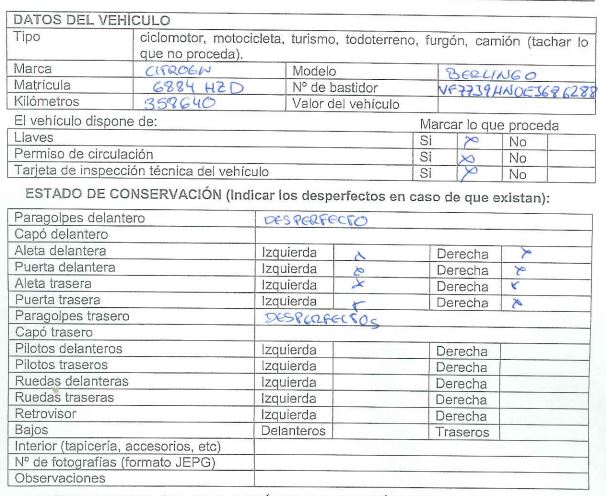 DATOS DEL VEHÍCULO
Tipo ciclomotor, motocicleta, turismo, todoterreno, furgón, camión (tachar lo
que no proceda).
Marca CITROEN Modelo BERLINGO
Matrícula 6884 HZD Nº de bastidor VF7739HN0EJ686288
Kilómetros 358640 Valor del vehículo
El vehículo dispone de: Marcar lo que proceda
Llaves Si x No
Permiso de circulación Si x No
Tarjeta de inspección técnica del vehículo Si x No
ESTADO DE CONSERVACIÓN (Indicar los desperfectos en caso de que existan):
Paragolpes delantero DESPERFECTO
Capó delantero
Aleta delantera Izquierda x Derecha x
Puerta delantera Izquierda x Derecha x
Aleta trasera Izquierda x Derecha x
Puerta trasera Izquierda x Derecha x
Paragolpes trasero DESPERFECTOS
Capó trasero
Pilotos delanteros Izquierda Derecha
Pilotos traseros Izquierda Derecha
Ruedas delanteras Izquierda Derecha
Ruedas traseras Izquierda Derecha
Retrovisor Izquierda Derecha
Bajos Delanteros Traseros
Interior (tapicería, accesorios, etc)
Nº de fotografías (formato JEPG)
Observaciones